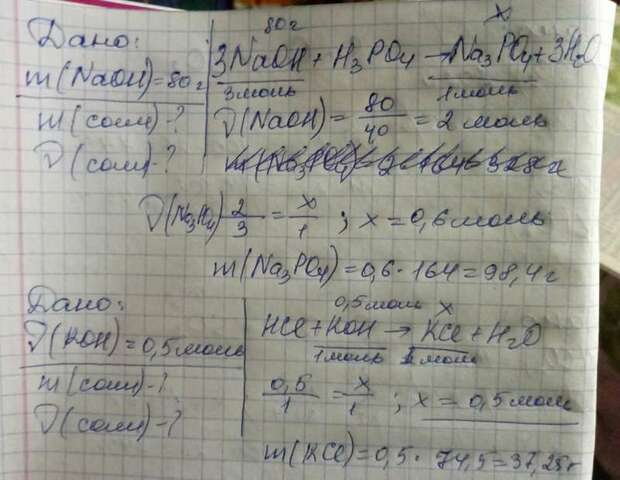 Дано:
m(NaOH)=80г
m(соли)-?
ν(соли)-?
80г x
3NaOH + H3PO4 → Na3PO4 + 3H2O
3моль 1моль
ν(NaOH) = 80/40 = 2 моль
ν(Na3PO4) 2/3 = x/1 ; x = 0,6 моль
m(Na3PO4) = 0,6 · 164 = 98,4 г
Дано:
ν(KOH) = 0,5 моль
m(соли)-?
ν(соли)-?
0,5 моль x
HCl + KOH → KCl + H2O
1моль 1моль
0,5/1 = x/1 ; x = 0,5 моль
m(KCl) = 0,5 · 74,5 = 37,25г